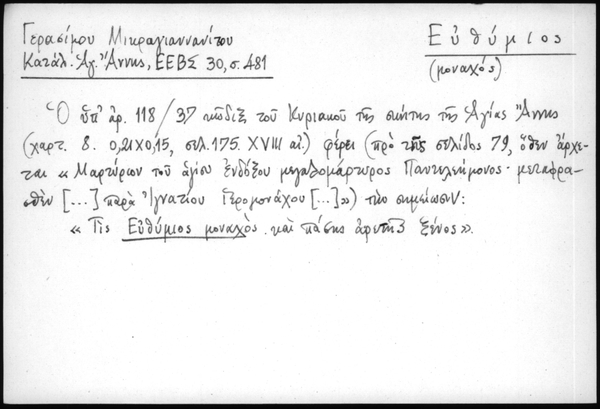 Γερασίμου Μικραγιαννανίτου
Κατάλ. Ἁγ. Ἄννης, ΕΕΒΣ 30, σ. 481
Εὐθύμιος
(μοναχός)
Ὁ ὑπ' ἀρ. 118/37 κῶδιξ τοῦ Κυριακοῦ τῆς σκήτης τῆς Ἁγίας Ἄννης
(χαρτ. 8. 0,21Χ0,15, σελ. 175. XVIII αἰ.) φέρει (πρὸ τῆς σελίδος 79, ὅθεν ἄρχε-
ται « Μαρτύριον τοῦ ἁγίου ἐνδόξου μεγαλομάρτυρος Παντελεήμονος· μεταφρα-
σθὲν [...] παρὰ Ἰγνατίου Ἱερομονάχου [...]») τὴν σημείωσιν:
« Τὶς Εὐθύμιος μοναχὸς καὶ πάσης ἀρετῆς ξένος ».